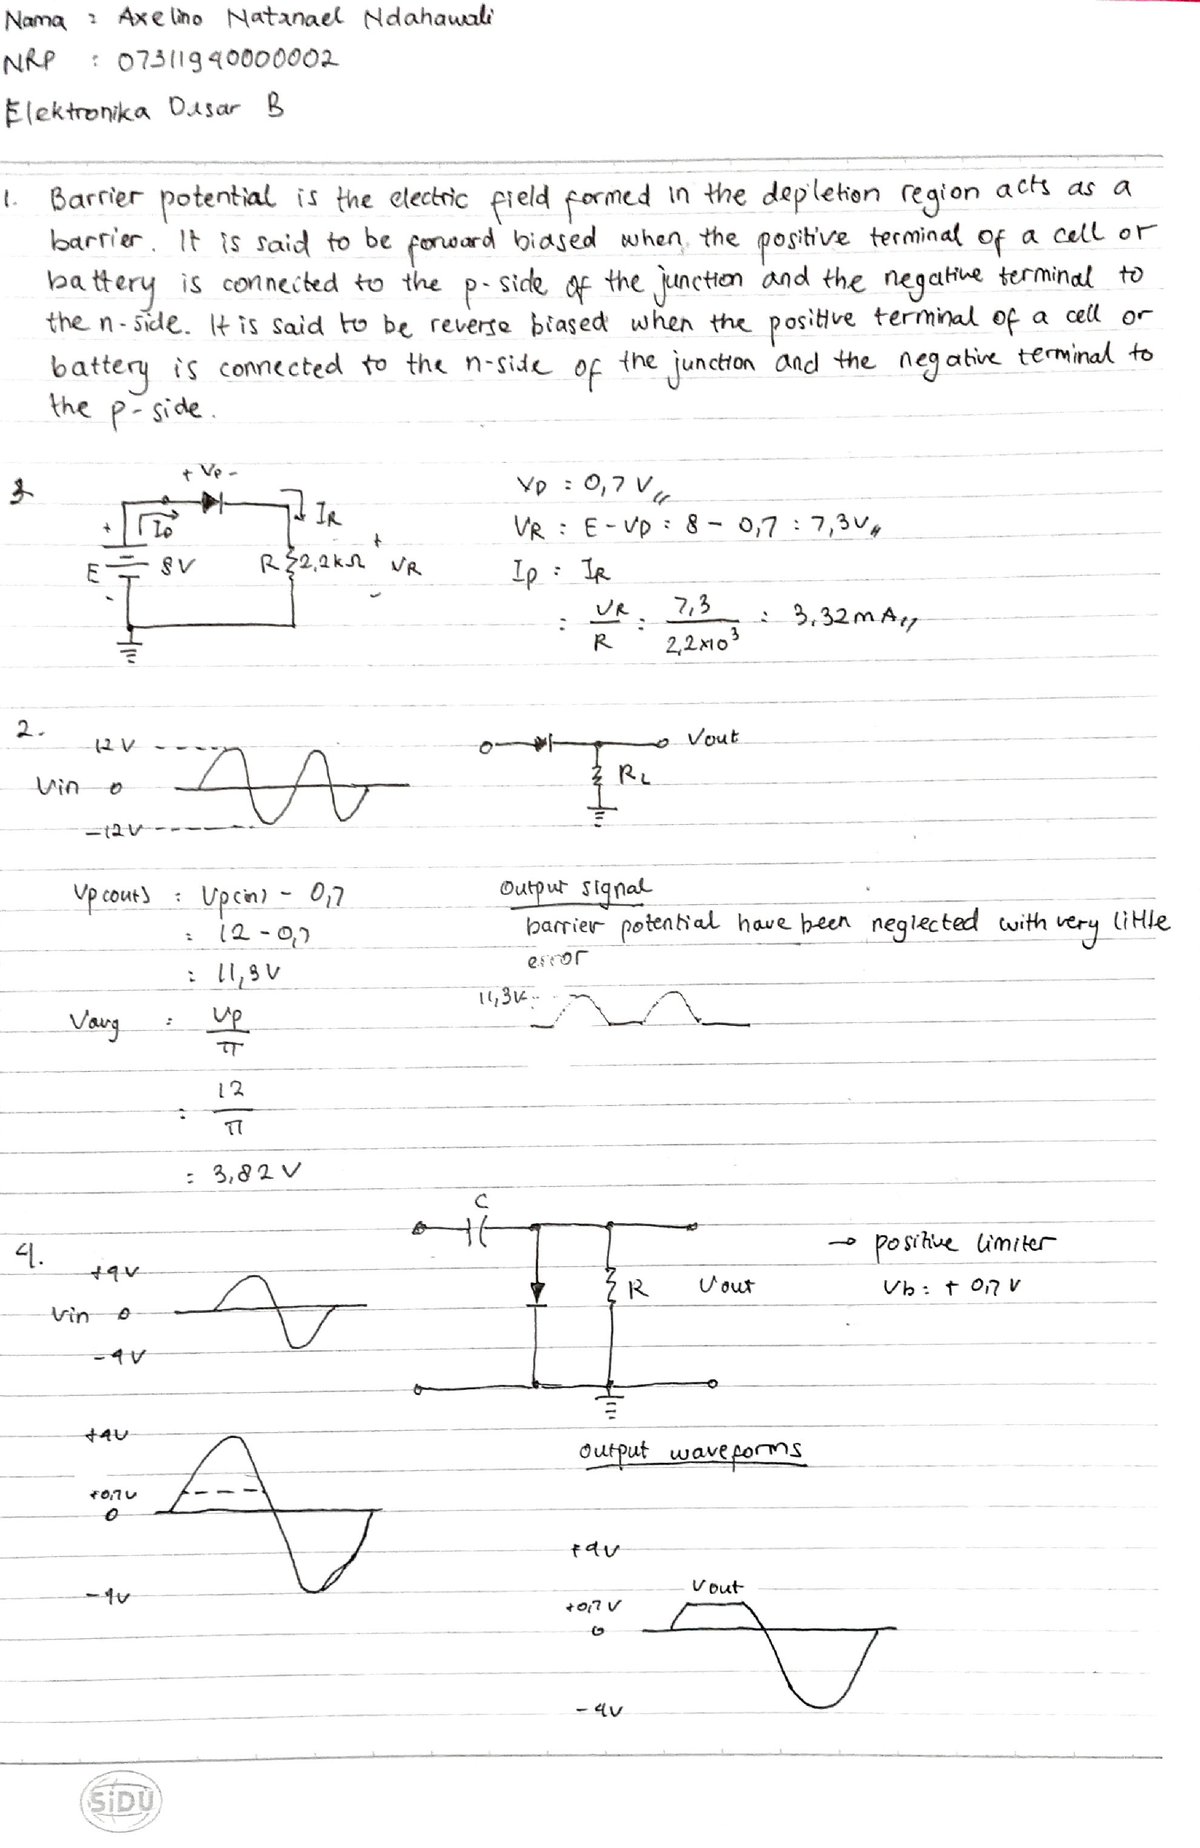 Nama : Axelino Natanael Ndahawali
NRP : 07311940000002
Elektronika Dasar B
1. Barrier potential is the electric field formed in the depletion region acts as a
barrier. It is said to be forward biased when the positive terminal of a cell or
battery is connected to the p-side of the junction and the negative terminal to
the n-side. It is said to be reverse biased when the positive terminal of a cell or
battery is connected to the n-side of the junction and the negative terminal to
the p-side.
3.
+ VD -
ID
IR
+
E
8V
-
R 2,2kΩ
+
VR
-
VD : 0,7 V
VR : E - VD : 8 - 0,7 : 7,3V
ID : IR
: VR / R : 7,3 / 2,2x10³ : 3,32 mA
2.
12 V
Vin 0
-12V
Vout
RL
Vp(out) : Vp(in) - 0,7
: 12 - 0,7
: 11,3V
Vavg : Vp / π
: 12 / π
: 3,82 V
Output signal
barrier potential have been neglected with very little
error
11,3V
4.
+4V
Vin 0
-4V
C
R
Vout
→ positive limiter
Vb : + 0,7 V
+4V
+0,7V
0
-4V
output waveforms
+4V
Vout
+0,7 V
0
-4V
SiDU